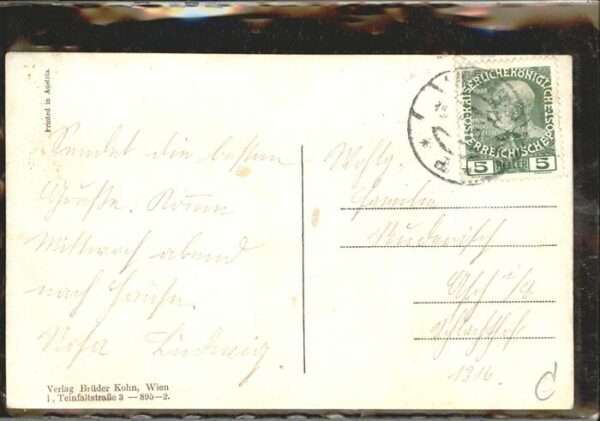 Printed in Austria
Sendet die besten
Grüße. Komm
Mittwoch abend
nach Hause.
Ludwig.
Verlag Brüder Kohn, Wien
I, Teinfaltstraße 3 — 895—2.
KAISERLICHE KÖNIGLICHE
ÖSTERREICHISCHE POST
5 HELLER 5
Wohlg.
Familie
Asch i/B
1916.
C